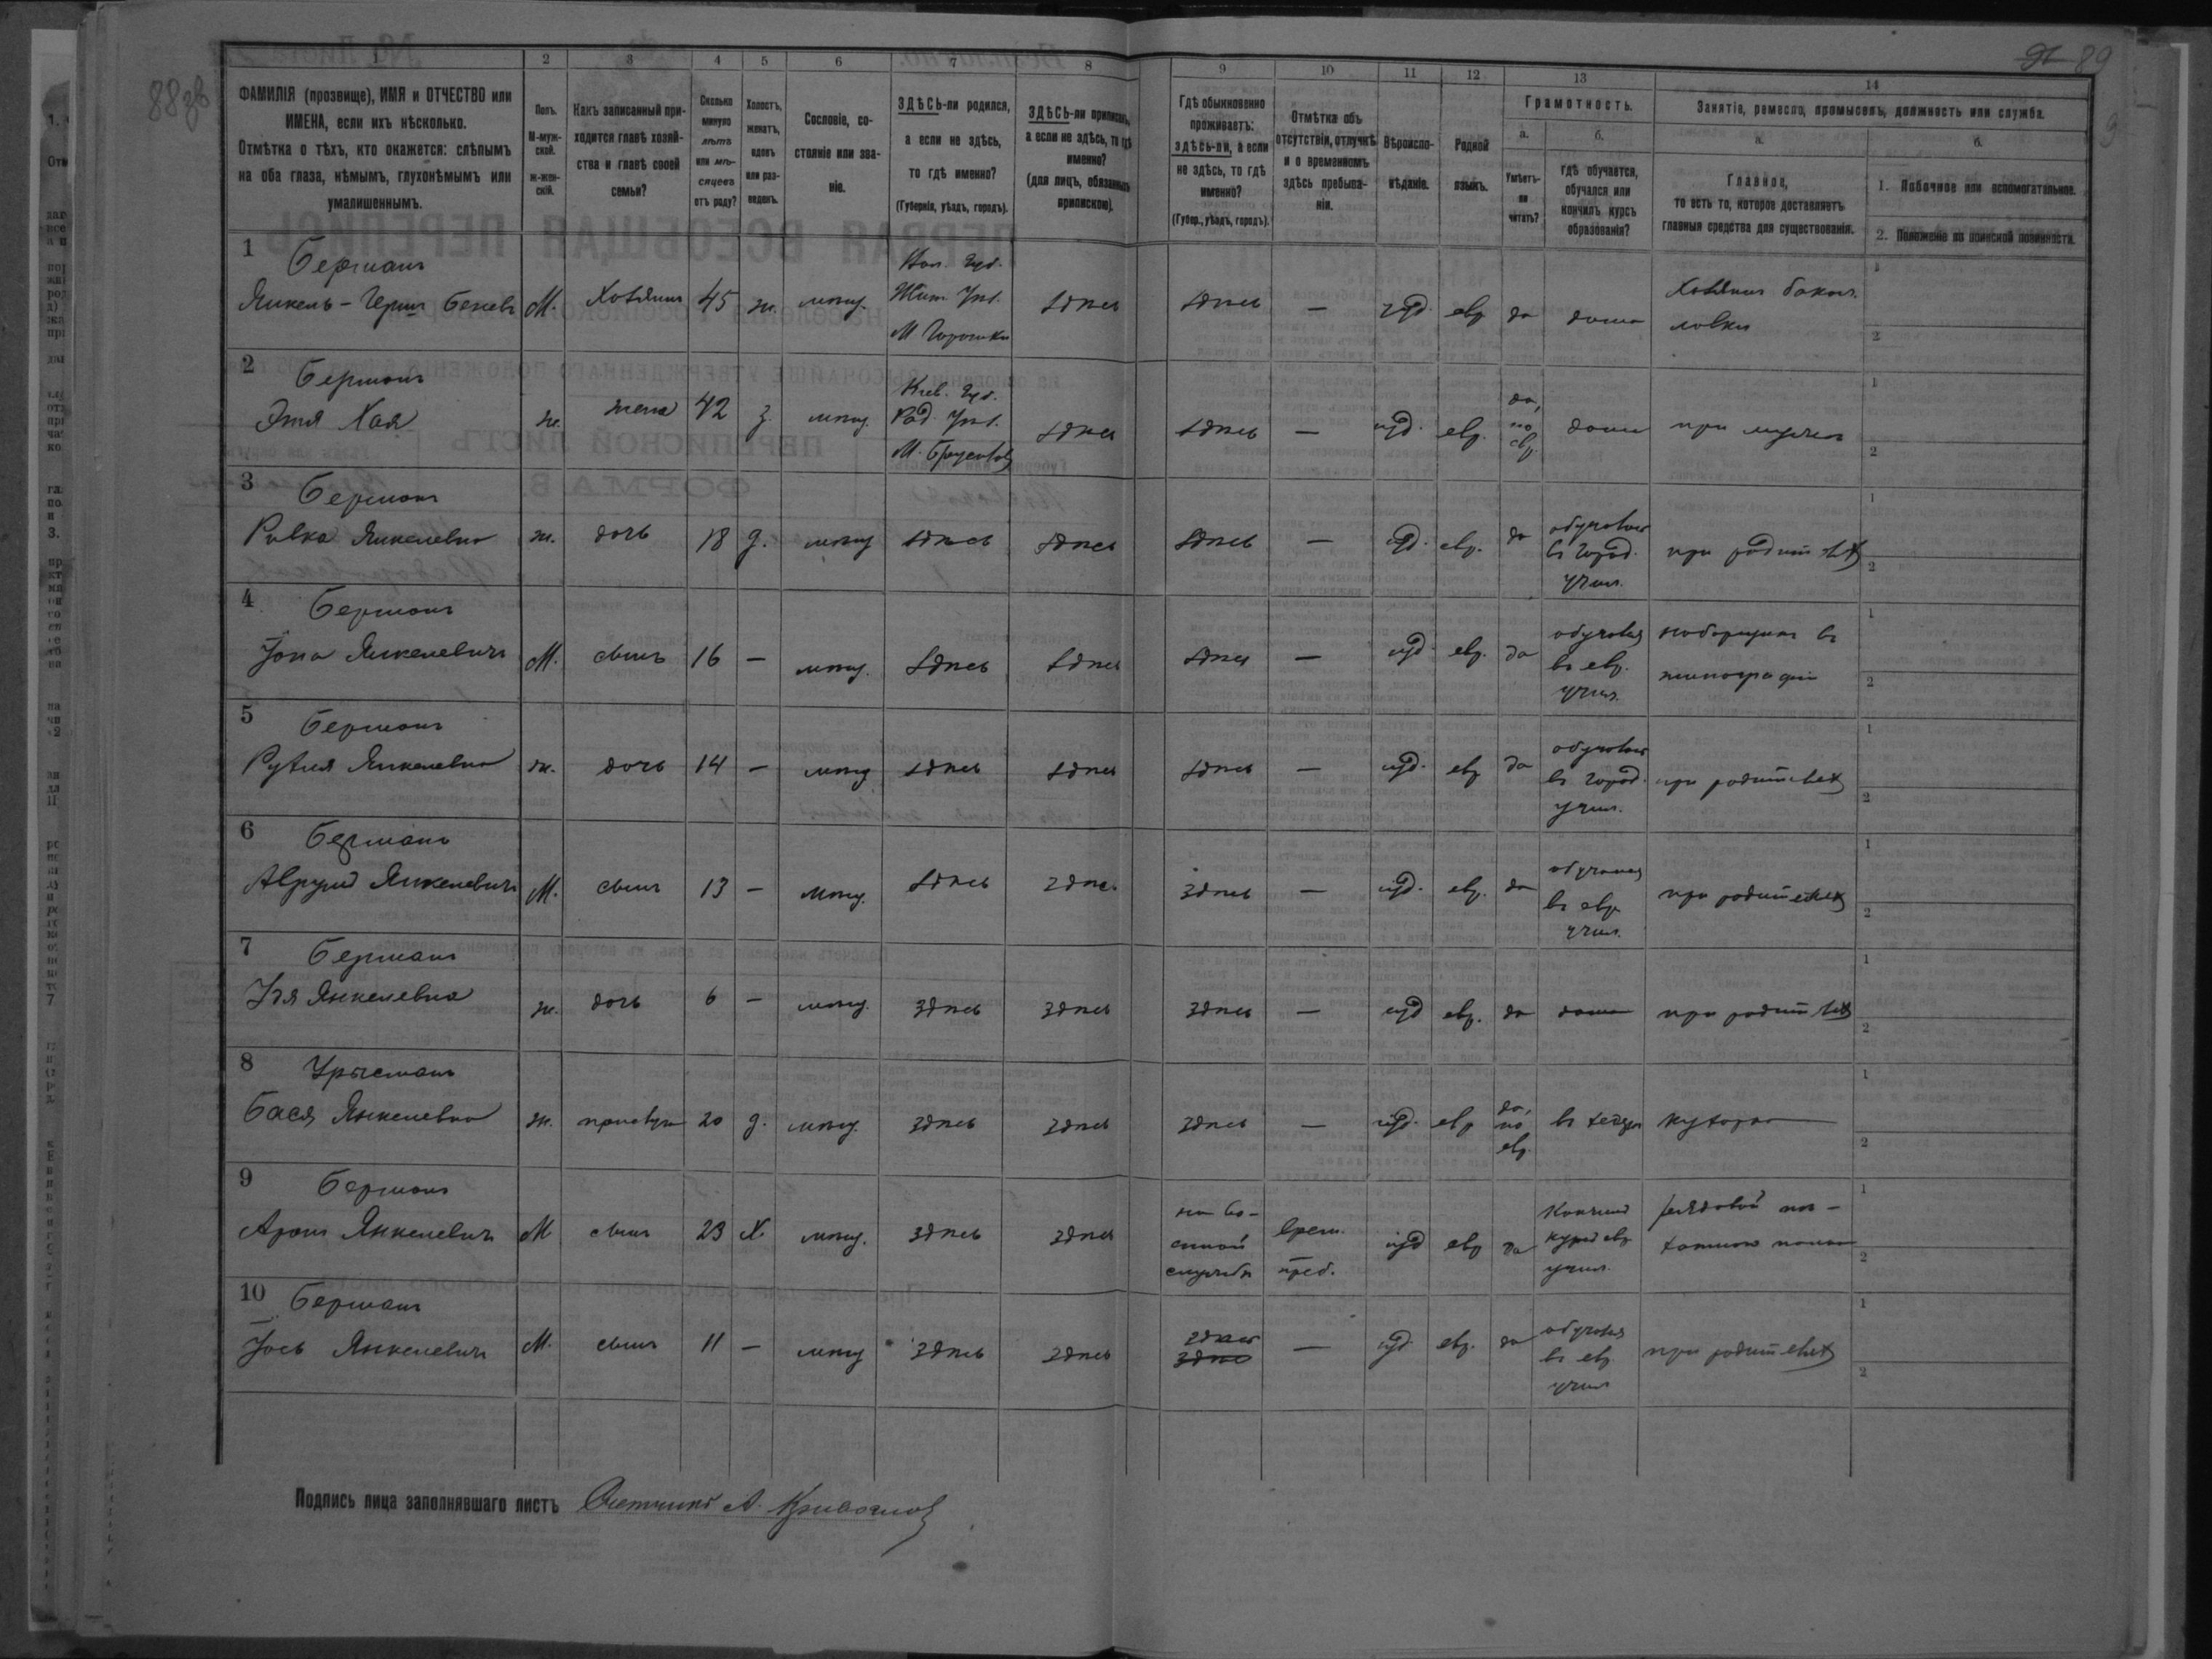 88 об
91 89
1 2 3 4 5 6 7 8 9 10 11 12 13 14
ФАМИЛІЯ (прозвище), ИМЯ и ОТЧЕСТВО или
ИМЕНА, если ихъ нѣсколько.
Отмѣтка о тѣхъ, кто окажется: слѣпымъ
на оба глаза, нѣмымъ, глухонѣмымъ или
умалишеннымъ.
Полъ.
М-муж-
ской.
ж-жен-
скій.
Какъ записанный при-
ходится главѣ хозяй-
ства и главѣ своей
семьи?
Сколько
минуло
лѣтъ
или мѣ-
сяцевъ
отъ роду?
Холостъ,
женатъ,
вдовъ
или раз-
веденъ.
Сословіе, со-
стояніе или зва-
ніе.
ЗДѢСЬ-ли родился,
а если не здѣсь,
то гдѣ именно?
(Губернія, уѣздъ, городъ).
ЗДѢСЬ-ли приписанъ,
а если не здѣсь, то гдѣ
именно?
(для лицъ, обязанныхъ
припискою).
Гдѣ обыкновенно
проживаетъ:
здѣсь-ли, а если
не здѣсь, то гдѣ
именно?
(Губер., уѣздъ, городъ).
Отмѣтка объ
отсутствіи, отлучкѣ
и о временномъ
здѣсь пребыва-
ніи.
Вѣроиспо-
вѣданіе.
Родной
языкъ.
Грамотность.
а.
Умѣетъ-
ли
читать?
б.
гдѣ обучается,
обучался или
кончилъ курсъ
образованія?
Занятія, ремесло, промыселъ, должность или служба.
а.
Главное,
то есть то, которое доставляетъ
главныя средства для существованія.
б.
1. Побочное или вспомогательное.
2. Положеніе по воинской повинности.
1 Берманъ
Янкель-Герш М. Хозяинъ 45 ж. мѣщ. Вол. Губ. Жит. Уѣз. М. Горошки здѣсь здѣсь — іуд. евр да дома Хозяинъ бакал. лавки
2 Берманъ
Этя Хая ж. жена 42 з. мѣщ. Кіев. Губ. Рад. Уѣз. М. Брусилов здѣсь здѣсь — іуд. евр. да, по евр. дома при мужѣ
3 Берманъ
Ривка Янкелевна ж. дочь 18 д. мѣщ здѣсь здѣсь здѣсь — іуд. евр. да обучалась въ город. учил. при родителях
4 Берманъ
Іона Янкелевичъ М. сынъ 16 — мѣщ. здѣсь здѣсь здѣсь — іуд. евр. да обучался въ евр. учил. наборщик въ типографіи
5 Берманъ
Рухля Янкелевна ж. дочь 14 — мѣщ здѣсь здѣсь здѣсь — іуд. евр да обучалась въ город. учил. при родителях
6 Берманъ
Аврумъ Янкелевичъ М. сынъ 13 — мѣщ. здѣсь здѣсь здѣсь — іуд. евр. да обучался въ евр. учил. при родителях
7 Берманъ
Янкелевна ж. дочь 6 — мѣщ. здѣсь здѣсь здѣсь — іуд евр. да дома при родителях
8
Бася Янкелевна ж. прислуга 20 д. мѣщ. здѣсь здѣсь здѣсь — іуд. евр да, по евр. въ хедерѣ кухарка
9 Берманъ
Аронъ Янкелевичъ М сынъ 23 Х мѣщ. здѣсь здѣсь на во-
енной
службѣ врем.
преб. іуд евр да Кончилъ курсъ евр учил. рядовой пѣ-
хотнаго полка
10 Берманъ
Іось Янкелевичъ М. сынъ 11 — мѣщ здѣсь здѣсь здѣсь — іуд. евр. да обучался въ евр учил при родителях
Подпись лица заполнявшаго листъ Счетчикъ А.